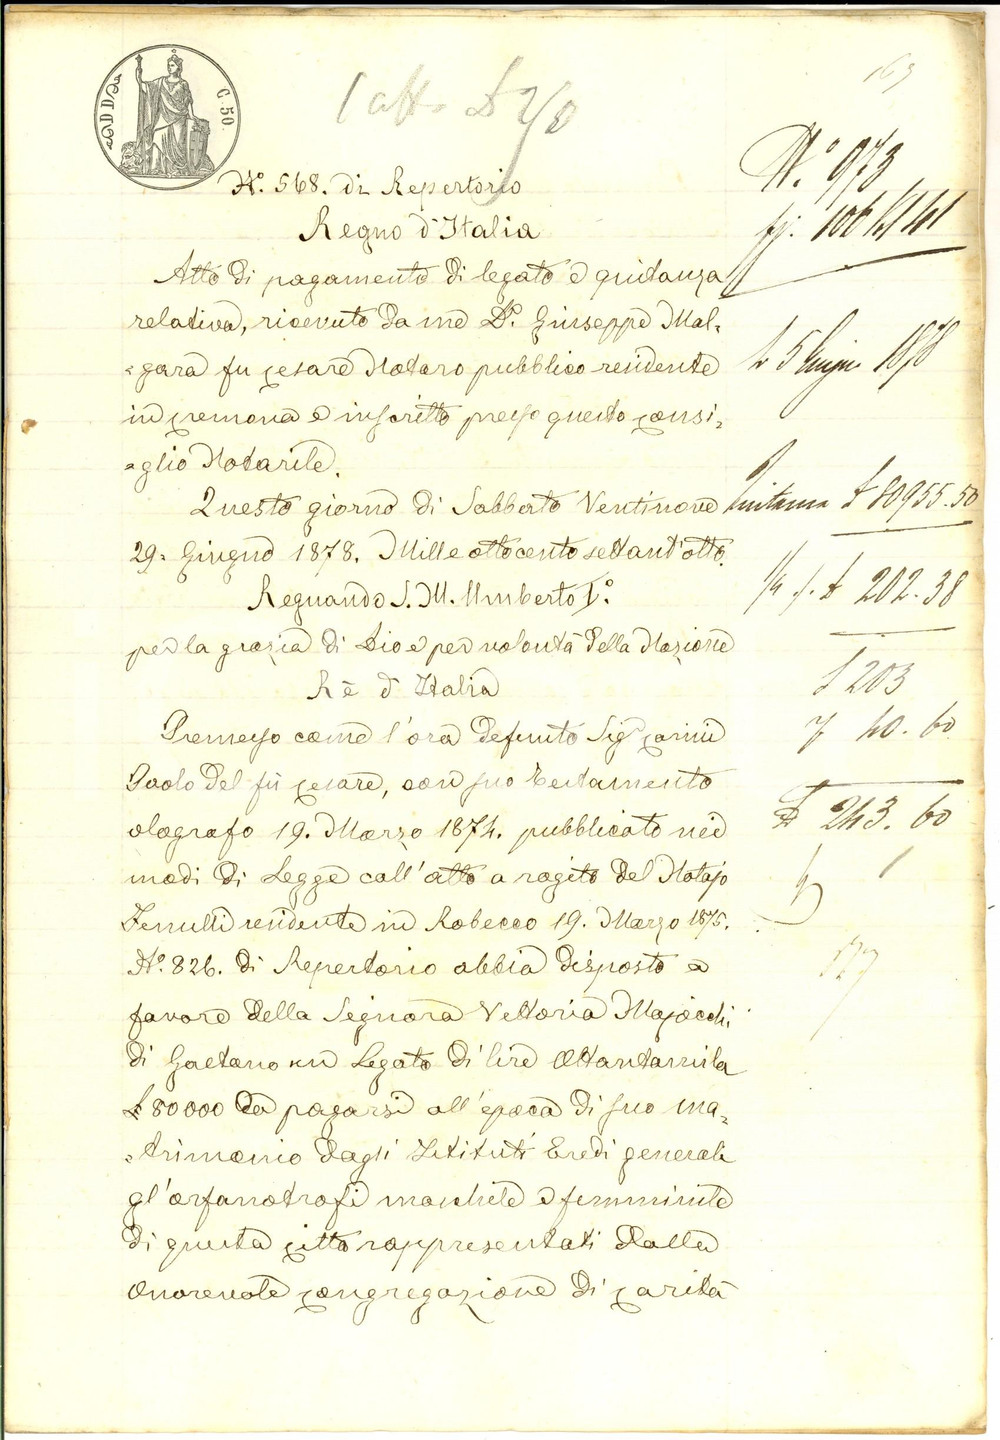 C. 50
1 atto
163
N.° 568. di Repertorio
Regno d'Italia
Atto di pagamento di legato e quitanza
relativa, ricevuto da me D.r Giuseppe Mal=
=gara fu Cesare Notaro pubblico residente
in Cremona e inscritto presso questo Consi=
=glio Notarile.
Questo giorno di Sabbato Ventinove
29. Giugno 1878. Mille ottocento settant'otto.
Regnando S. M. Umberto I.°
per la grazia di Dio e per volontà della Nazione
Rè d'Italia
Premesso come l'ora defunto Sig.r
Paolo del fù Cesare, con suo Testamento
olografo 19. Marzo 1874. pubblicato nei
modi di Legge coll'atto a rogito del Notajo
residente in Robecco 19. Marzo 1875.
N.° 826. di Repertorio abbia disposto a
favore della Signora Vittoria Majocchi
di Gaetano un Legato di lire Ottantamila
£ 80000 da pagarsi all'epoca di suo ma=
=trimonio dagli Istituti Eredi generali
gl'orfanotrofi maschile e femminile
di questa Città rappresentati dalla
Onorevole Congregazione di Carità
N.° 973
fg. 106
5 1878
Quitanza £ 80955.50
£ 202.38
£ 203
40.60
£ 243.60
1